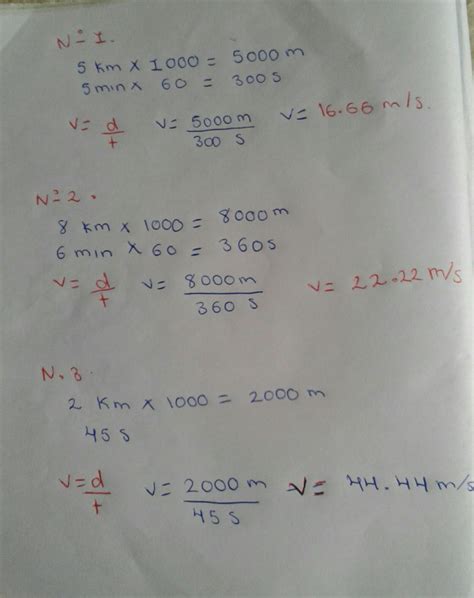 Nº 1.
5 Km x 1000 = 5000 m
5 min x 60 = 300 s
V = d/t V = 5000 m/300 s V = 16.66 m/s.
Nº 2.
8 Km x 1000 = 8000 m
6 min x 60 = 360 s
V = d/t V = 8000 m/360 s V = 22.22 m/s
N. 3.
2 Km x 1000 = 2000 m
45 s
V = d/t V = 2000 m/45 s V = 44.44 m/s